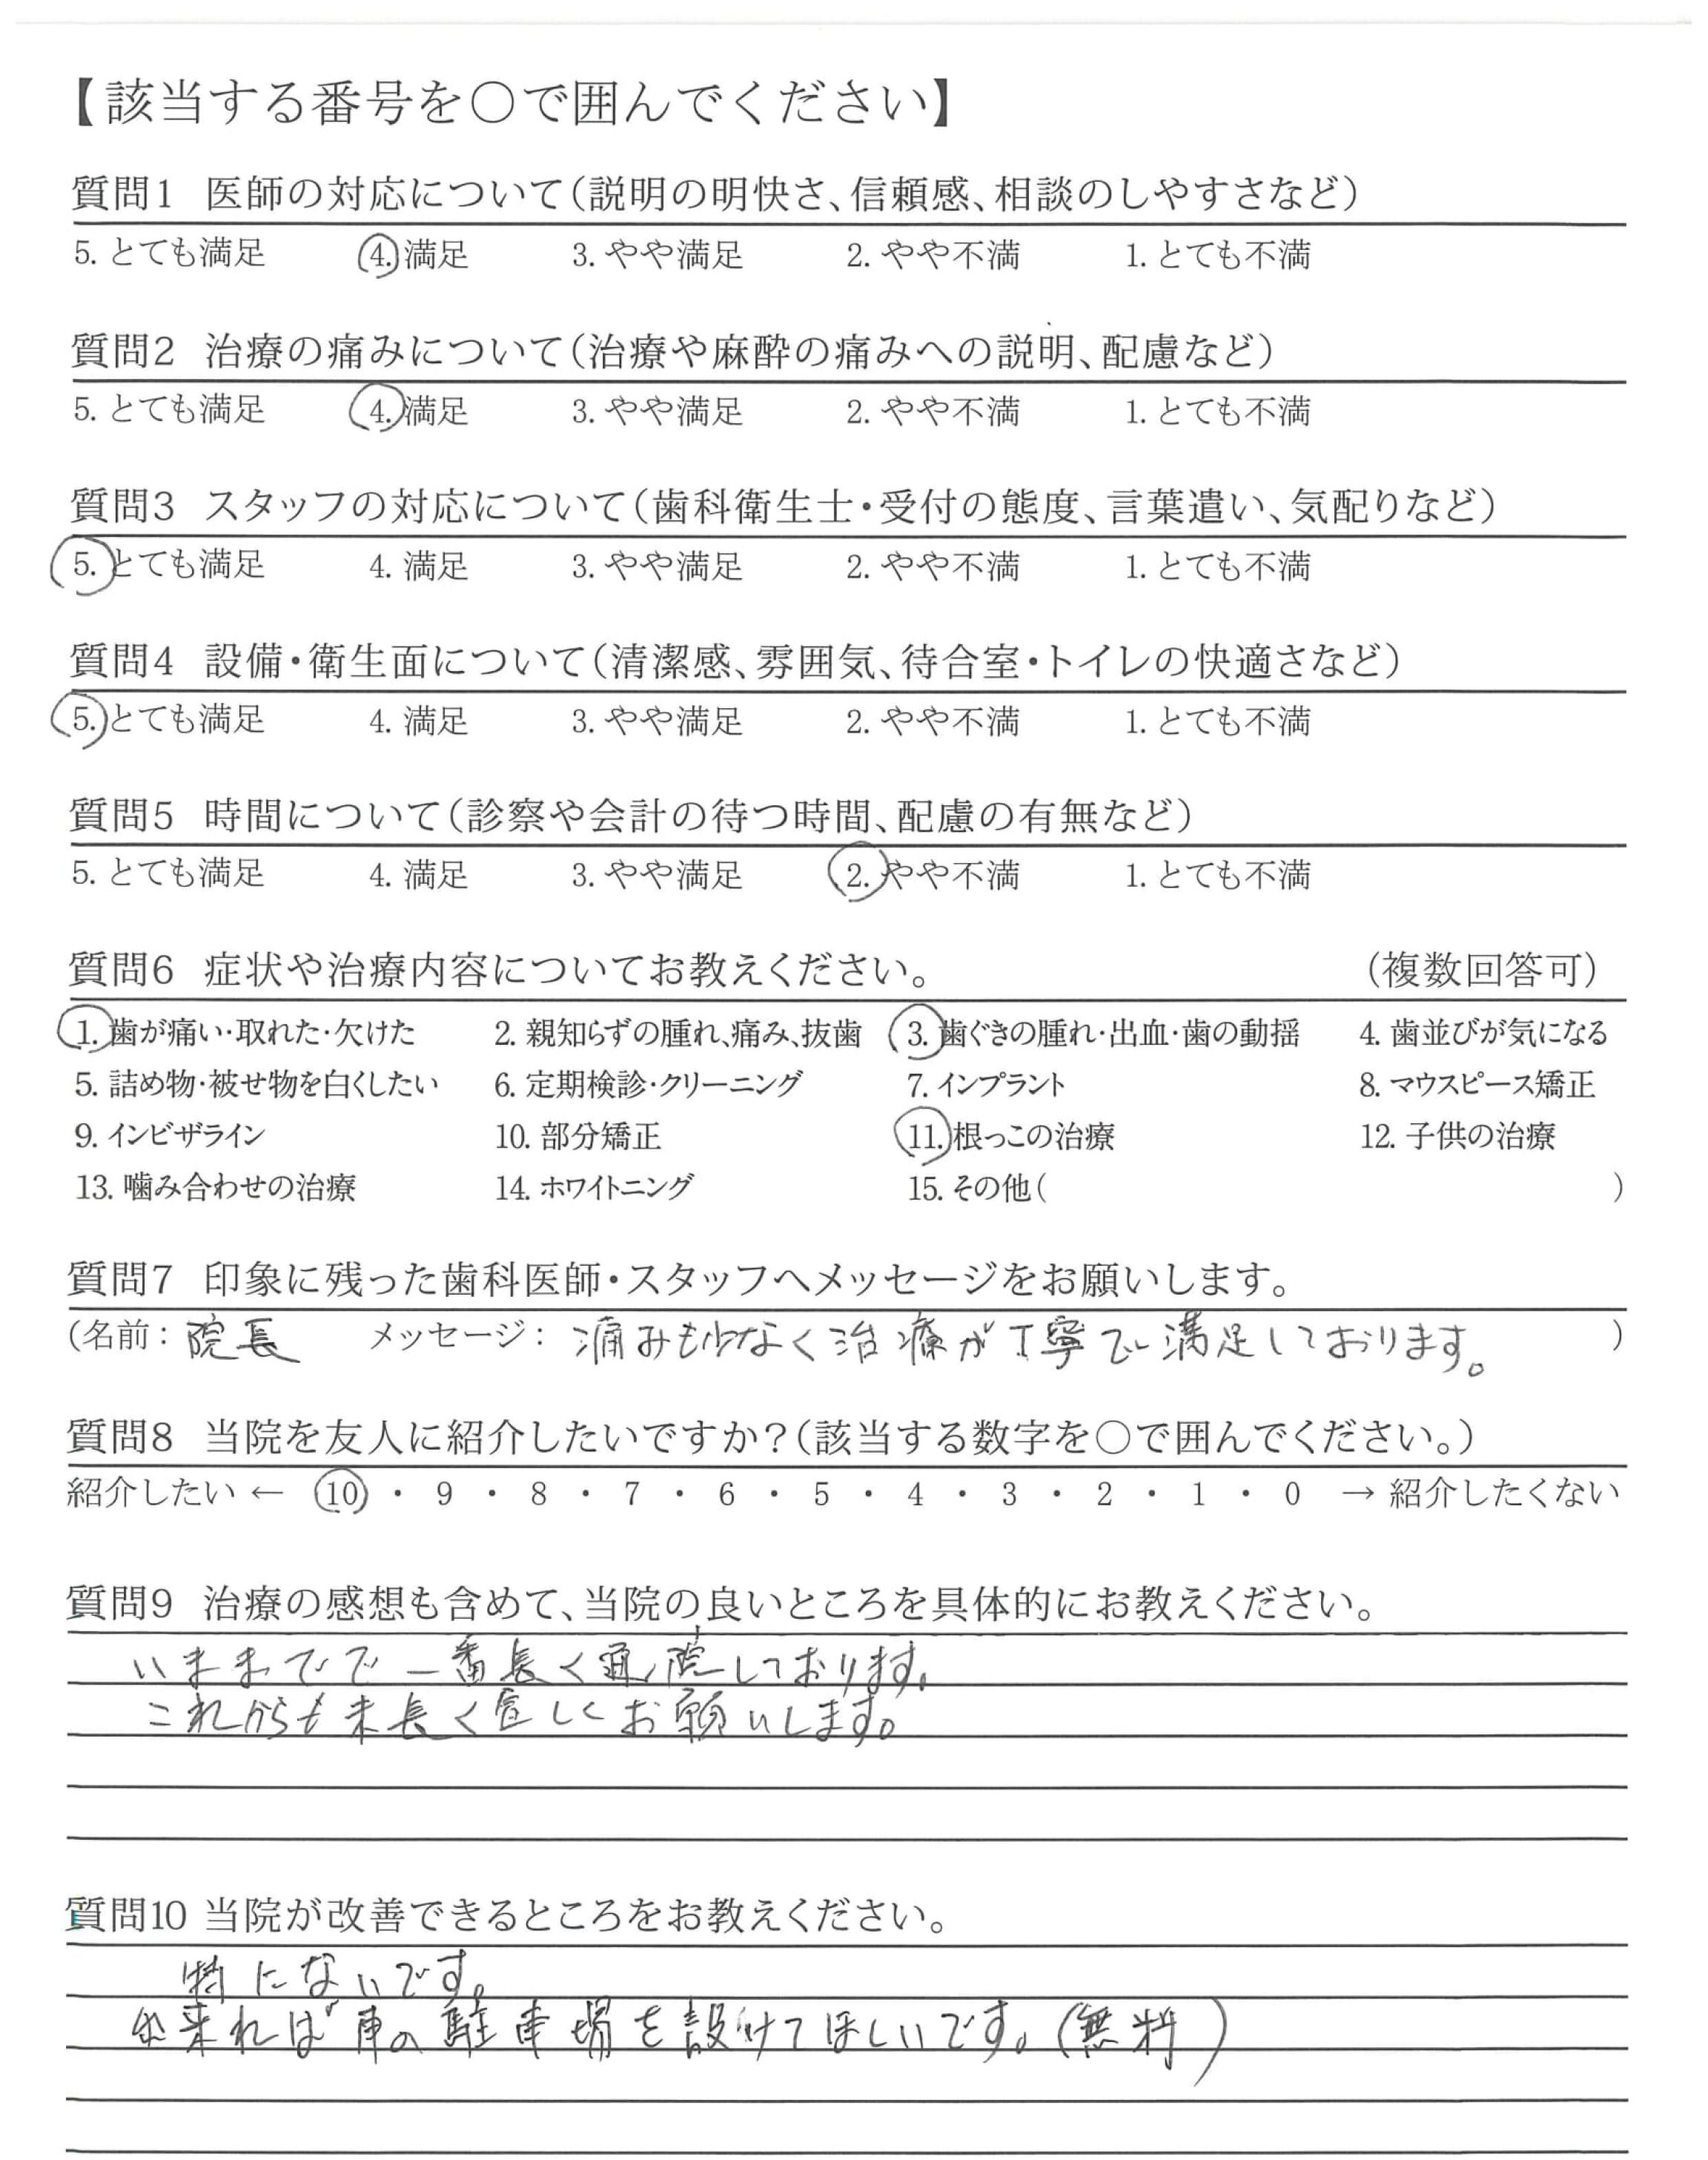 【該当する番号を〇で囲んでください】
質問1 医師の対応について（説明の明快さ、信頼感、相談のしやすさなど）
5. とても満足 4. 満足 3. やや満足 2. やや不満 1. とても不満
質問2 治療の痛みについて（治療や麻酔の痛みへの説明、配慮など）
5. とても満足 4. 満足 3. やや満足 2. やや不満 1. とても不満
質問3 スタッフの対応について（歯科衛生士・受付の態度、言葉遣い、気配りなど）
5. とても満足 4. 満足 3. やや満足 2. やや不満 1. とても不満
質問4 設備・衛生面について（清潔感、雰囲気、待合室・トイレの快適さなど）
5. とても満足 4. 満足 3. やや満足 2. やや不満 1. とても不満
質問5 時間について（診察や会計の待つ時間、配慮の有無など）
5. とても満足 4. 満足 3. やや満足 2. やや不満 1. とても不満
質問6 症状や治療内容についてお教えください。 （複数回答可）
1. 歯が痛い・取れた・欠けた 2. 親知らずの腫れ、痛み、抜歯 3. 歯ぐきの腫れ・出血・歯の動揺 4. 歯並びが気になる
5. 詰め物・被せ物を白くしたい 6. 定期検診・クリーニング 7. インプラント 8. マウスピース矯正
9. インビザライン 10. 部分矯正 11. 根っこの治療 12. 子供の治療
13. 噛み合わせの治療 14. ホワイトニング 15. その他（ ）
質問7 印象に残った歯科医師・スタッフへメッセージをお願いします。
（名前：院長 メッセージ：痛みも少なく治療が丁寧で満足しております。 ）
質問8 当院を友人に紹介したいですか？（該当する数字を〇で囲んでください。）
紹介したい ← 10 ・ 9 ・ 8 ・ 7 ・ 6 ・ 5 ・ 4 ・ 3 ・ 2 ・ 1 ・ 0 → 紹介したくない
質問9 治療の感想も含めて、当院の良いところを具体的にお教えください。
いままでで一番長く通院しております。
これからも末長く宜しくお願いします。
質問10 当院が改善できるところをお教えください。
特にないです。
出来れば車の駐車場を設けてほしいです。（無料）